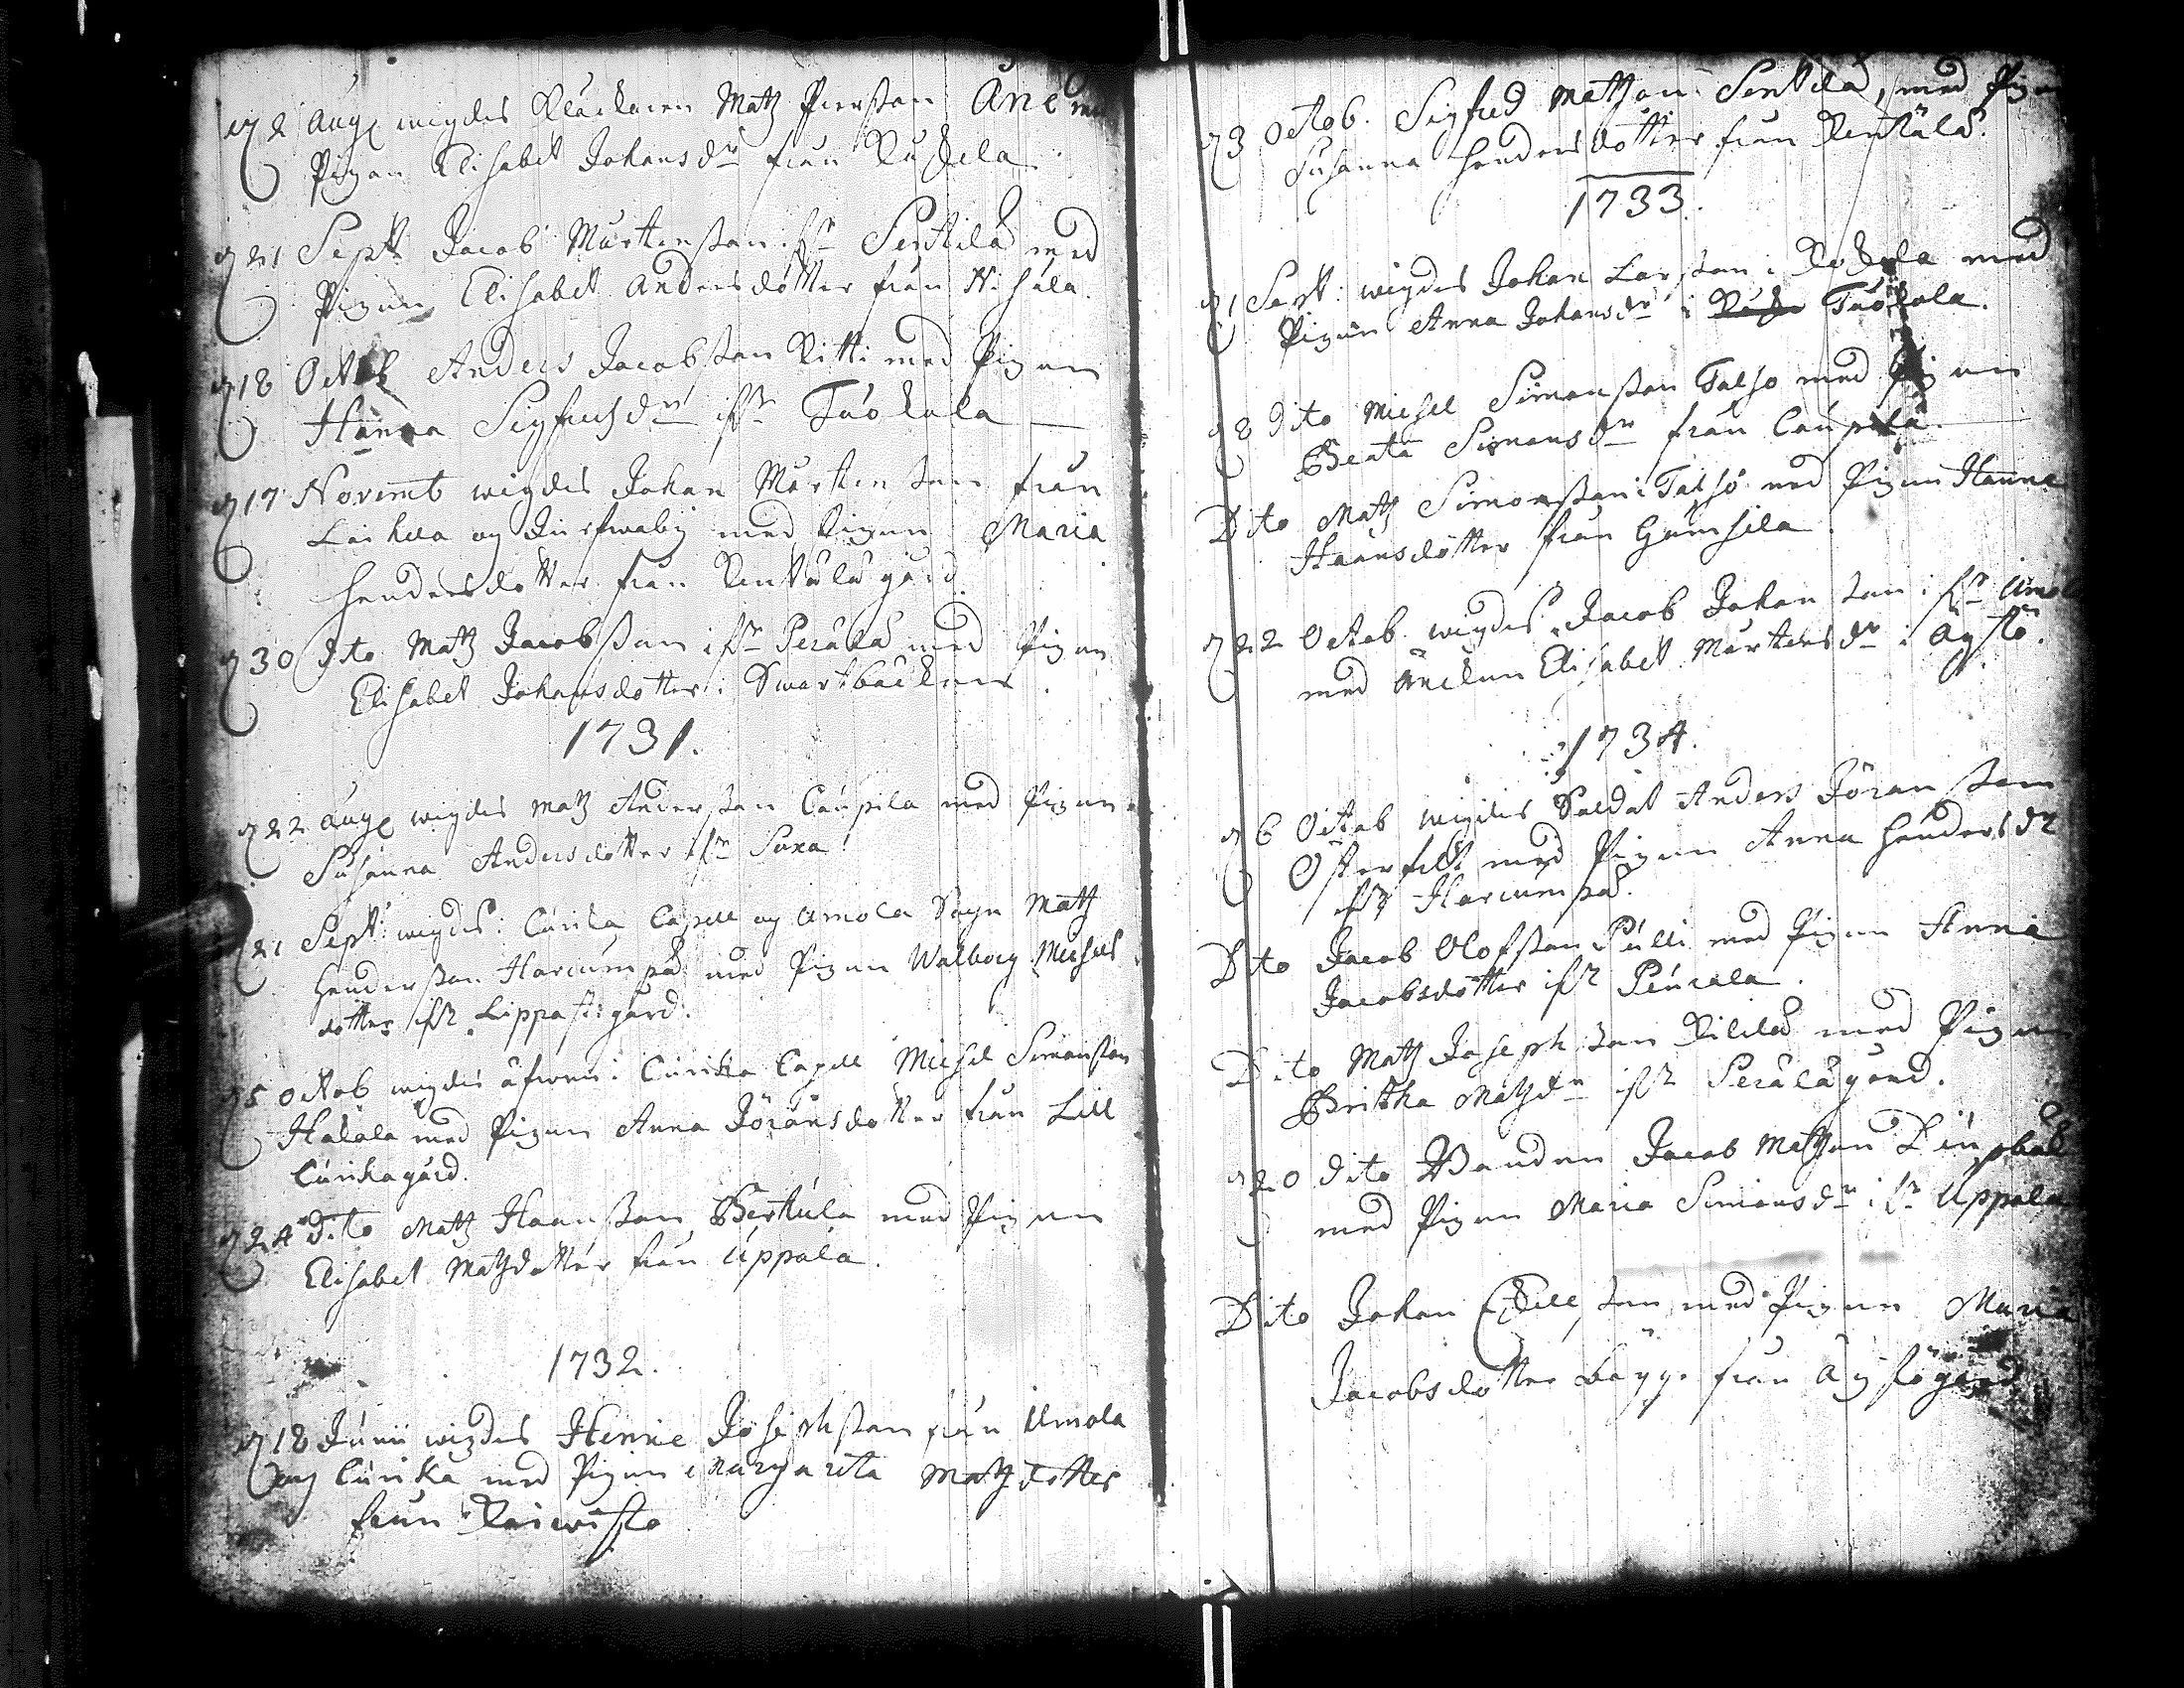 d 2 Aug wigdes Klåckaren Matz Pärsson Ane med
Pigan Elisabet Johansdr från Kuckela
d 21 Sept Jacob Mårtensson ifrn Pentilä med
Pigan Elisabet Andersdotter från Nihala
d 18 Octob Anders Jacobsson Kitti med Pigan
Hanna Sigfredsdr ifrn Tuokola
d 17 Novemb wigdes Johan Mårtensson från
Laihela og Jurfwaby med Pigan Maria
Hendersdotter från Penkala gård
d 30 dito Matz Jacobsson ifrn Perälä med Pigan
Elisabet Johansdotter i Swartbäcken
1731.
d 22 Aug wigdes Matz Andersson Caupila med Pigan
Susanna Andersdotter ifrn Saxa
d 21 Sept wigdes i Curika Capell og Umola Sogn Matz
Hendersson Harjumpä med Pigan Walborg Michels
dotter ifrn Lippasti gård.
d 5 Octob wigdes äfwen i Curika Capell Michel Simonsson
Hakala med Pigan Anna Jöransdotter från Lill
Curika gård.
d 24 dito Matz Hansson Bertula med Pigan
Elisabet Matzdotter från Uppala.
1732.
d 18 Junii wigdes Henric Josephsson från Umola
og Curika med Pigan Margareta Matzdotter
från Koiwisto
d 3 Octob. Sigfred Matsson Pentilä, med Pigan
Susanna Hendersdotter från Penkälä.
1733.
d 1 Sept: wigdes Johan Larsson i Kokola med
Pigan Anna Johansdr i Tuokola.
d 8 dito Michel Simonsson Talso med Pigan
Beata Simonsdr från Caupila.
Dito Matz Simonsson i Talso med Pigan Hanna
Hansdotter från Gumsila.
d 22 Octob. wigdes Jacob Johansson ifrn Umola
med Änckan Elisabet Mårtensdr i Ogstö.
1734.
d 6 Octob wigdes Soldat Anders Jöransson
Österfelt med Pigan Anna Hendersdr
ifrn Harjumpä.
Dito Jacob Olofsson Pulli med Pigan Anna
Jacobsdotter ifrn Peurala.
Dito Matz Josephsson Kililä med Pigan
Britha Matzdr ifrn Perälä gård.
d 20 dito Bonden Jacob Matsson
med Pigan Maria Simonsdr ifrn Uppala
Dito Johan Eskilsson med Pigan Maria
Jacobsdotter bägge från Ogstö gård